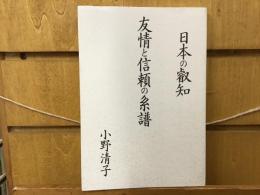 日本の叡知
友情と信頼の糸譜
小野清子